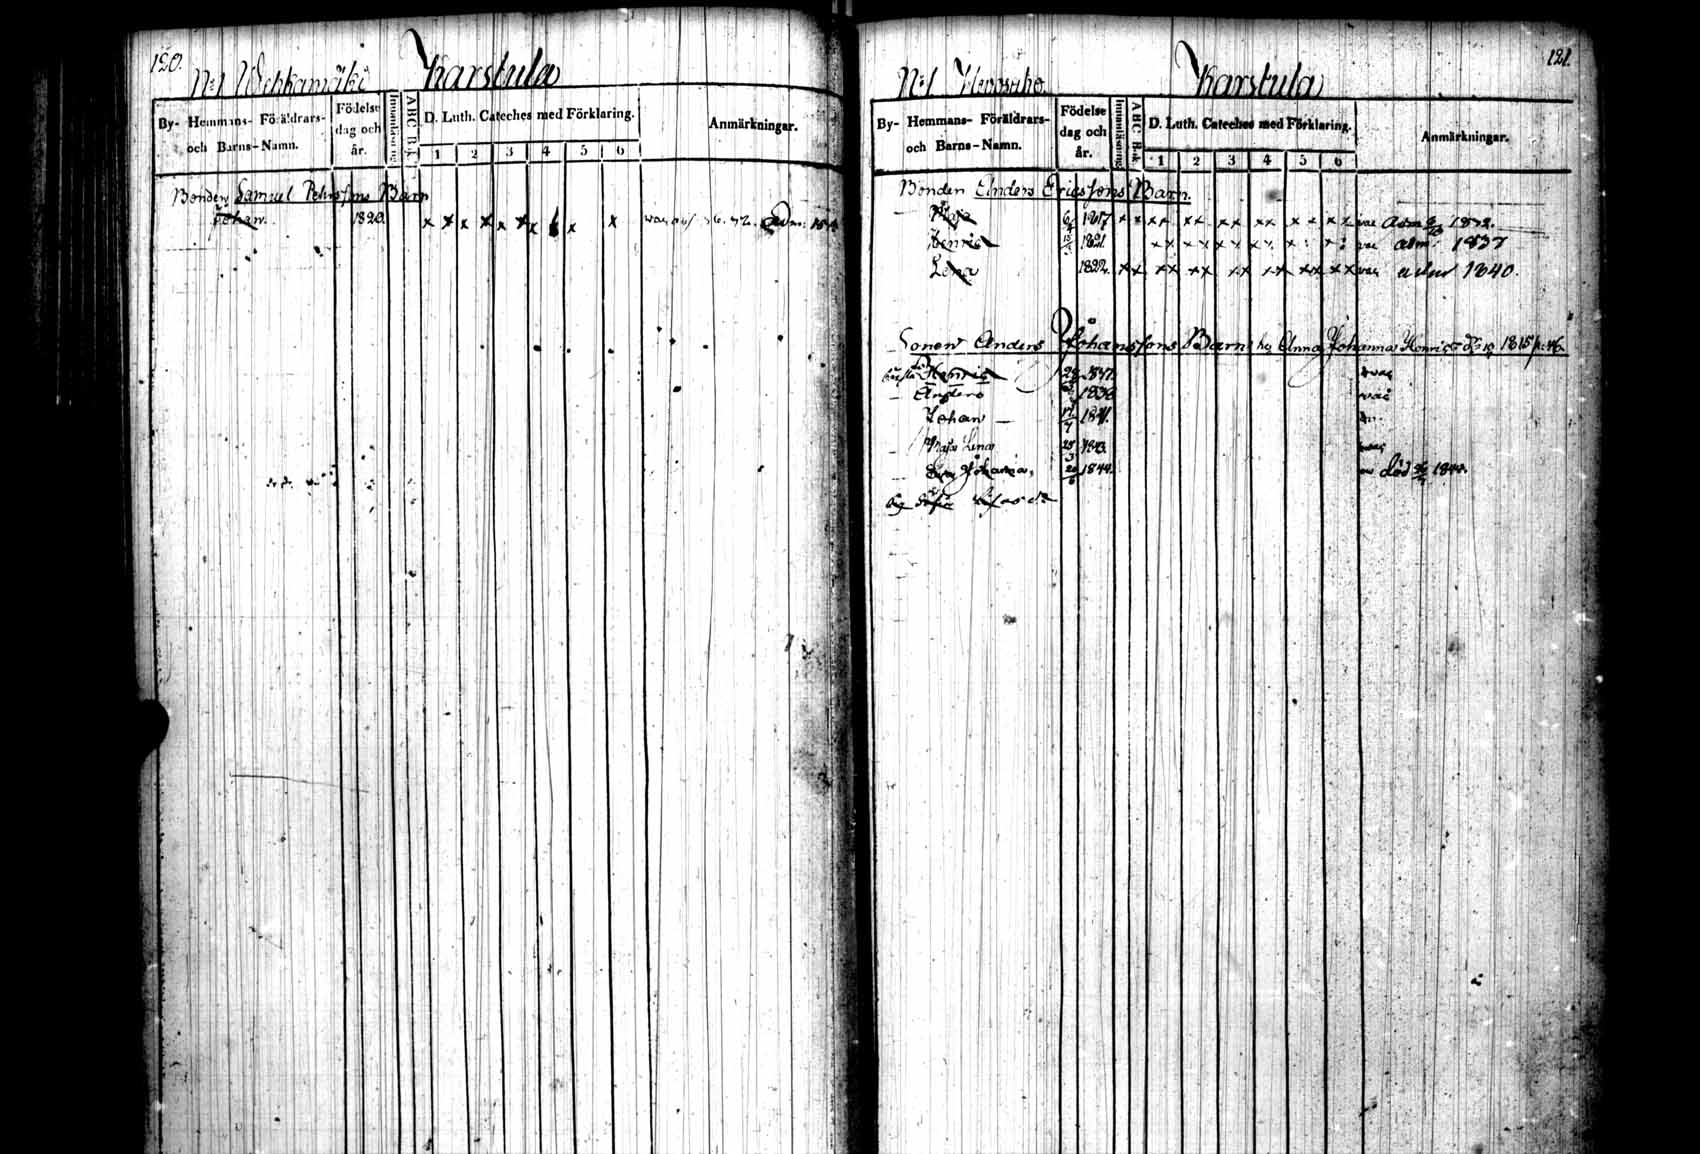 120.
N:1 Wehkamäki Karstula
By- Hemmans- Föräldrars- och Barns-Namn.
Födelse dag och år.
ABC B-k
D. Luth. Cateches med Förklaring.
1 2 3 4 5 6
Anmärkningar.
Bonden Samuel Pehrssons Barn
Johan 1820. x x x x x x x x x Adm:
121.
N:1 Karstula
By- Hemmans- Föräldrars- och Barns-Namn.
Födelse dag och år.
Innanläsning
ABC B-k
D. Luth. Cateches med Förklaring.
1 2 3 4 5 6
Anmärkningar.
Bonden Anders Ericssons Barn.
Maja 1817 x x x x x x x x x x x x x x vac Adm 1832.
Henric 1821 x x x x x x x x x vac adm. 1837
Lena 1822. x x x x x x x x x x x x x x vac adm 1840.
Sonen Anders Johanssons Barn Anna Johanna Henrics 1815 p: 46.
Henric 28 1837. vac
Anders 1838 vac
Johan — 17/7 1841.
Maja Lena 25/3 1843. vac
Eva Johanna, 20/6 1844. död 1844.